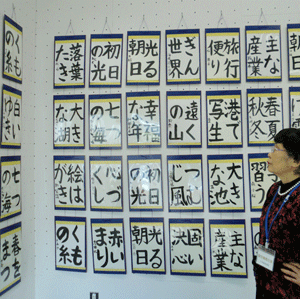 くも
の糸
白い
ゆき
七つ
の海
春を
まつ
落葉
たき
初日
の光
光る
朝日
ぎん
世界
旅行
便り
主な
産業
大き
な湖
七つ
の海
幸福
な年
遠く
の山
港で
写生
春夏
秋冬
絵は
がき
心づ
くし
初日
の光
つむ
じ風
大き
な池
習う
くも
赤い
まり
光る
朝日
固い
決心
主な
産業